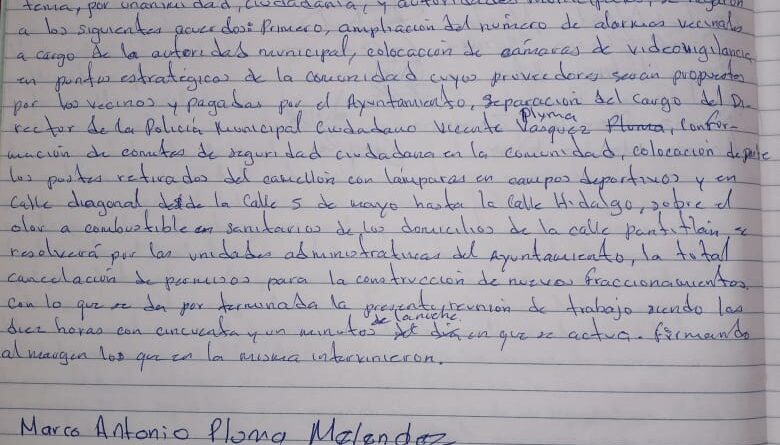 tema, por unanimidad, ciudadanía, y autoridades municipales, se llegaron
a los siguientes acuerdos: Primero, ampliación del número de alarmas vecinales
a cargo de la autoridad municipal, colocación de cámaras de videovigilancia
en puntos estratégicos de la comunidad cuyos proveedores serán propuestos
por los vecinos y pagadas por el Ayuntamiento, separación del cargo del Di-
rector de la Policía Municipal Ciudadano Vicente Plyma Vasquez Pluma, confor-
mación de comites de seguridad ciudadana en la comunidad, colocación de
los postes retirados del camellón con lámparas en campos deportivos y en
calle diagonal desde la Calle 5 de mayo hasta la Calle Hidalgo, sobre el
olor a combustible en sanitarios de los domicilios de la calle pantitlán se
resolverá por las unidades administrativas del Ayuntamiento, la total
cancelación de permisos para la construcción de nuevos fraccionamientos.
Con lo que se da por terminada la presente reunión de trabajo siendo las
diez horas con cincuenta y un minutos de la noche del día en que se actua. firmando
al margen los que en la misma intervinieron.
Marco Antonio Pluma Melendez